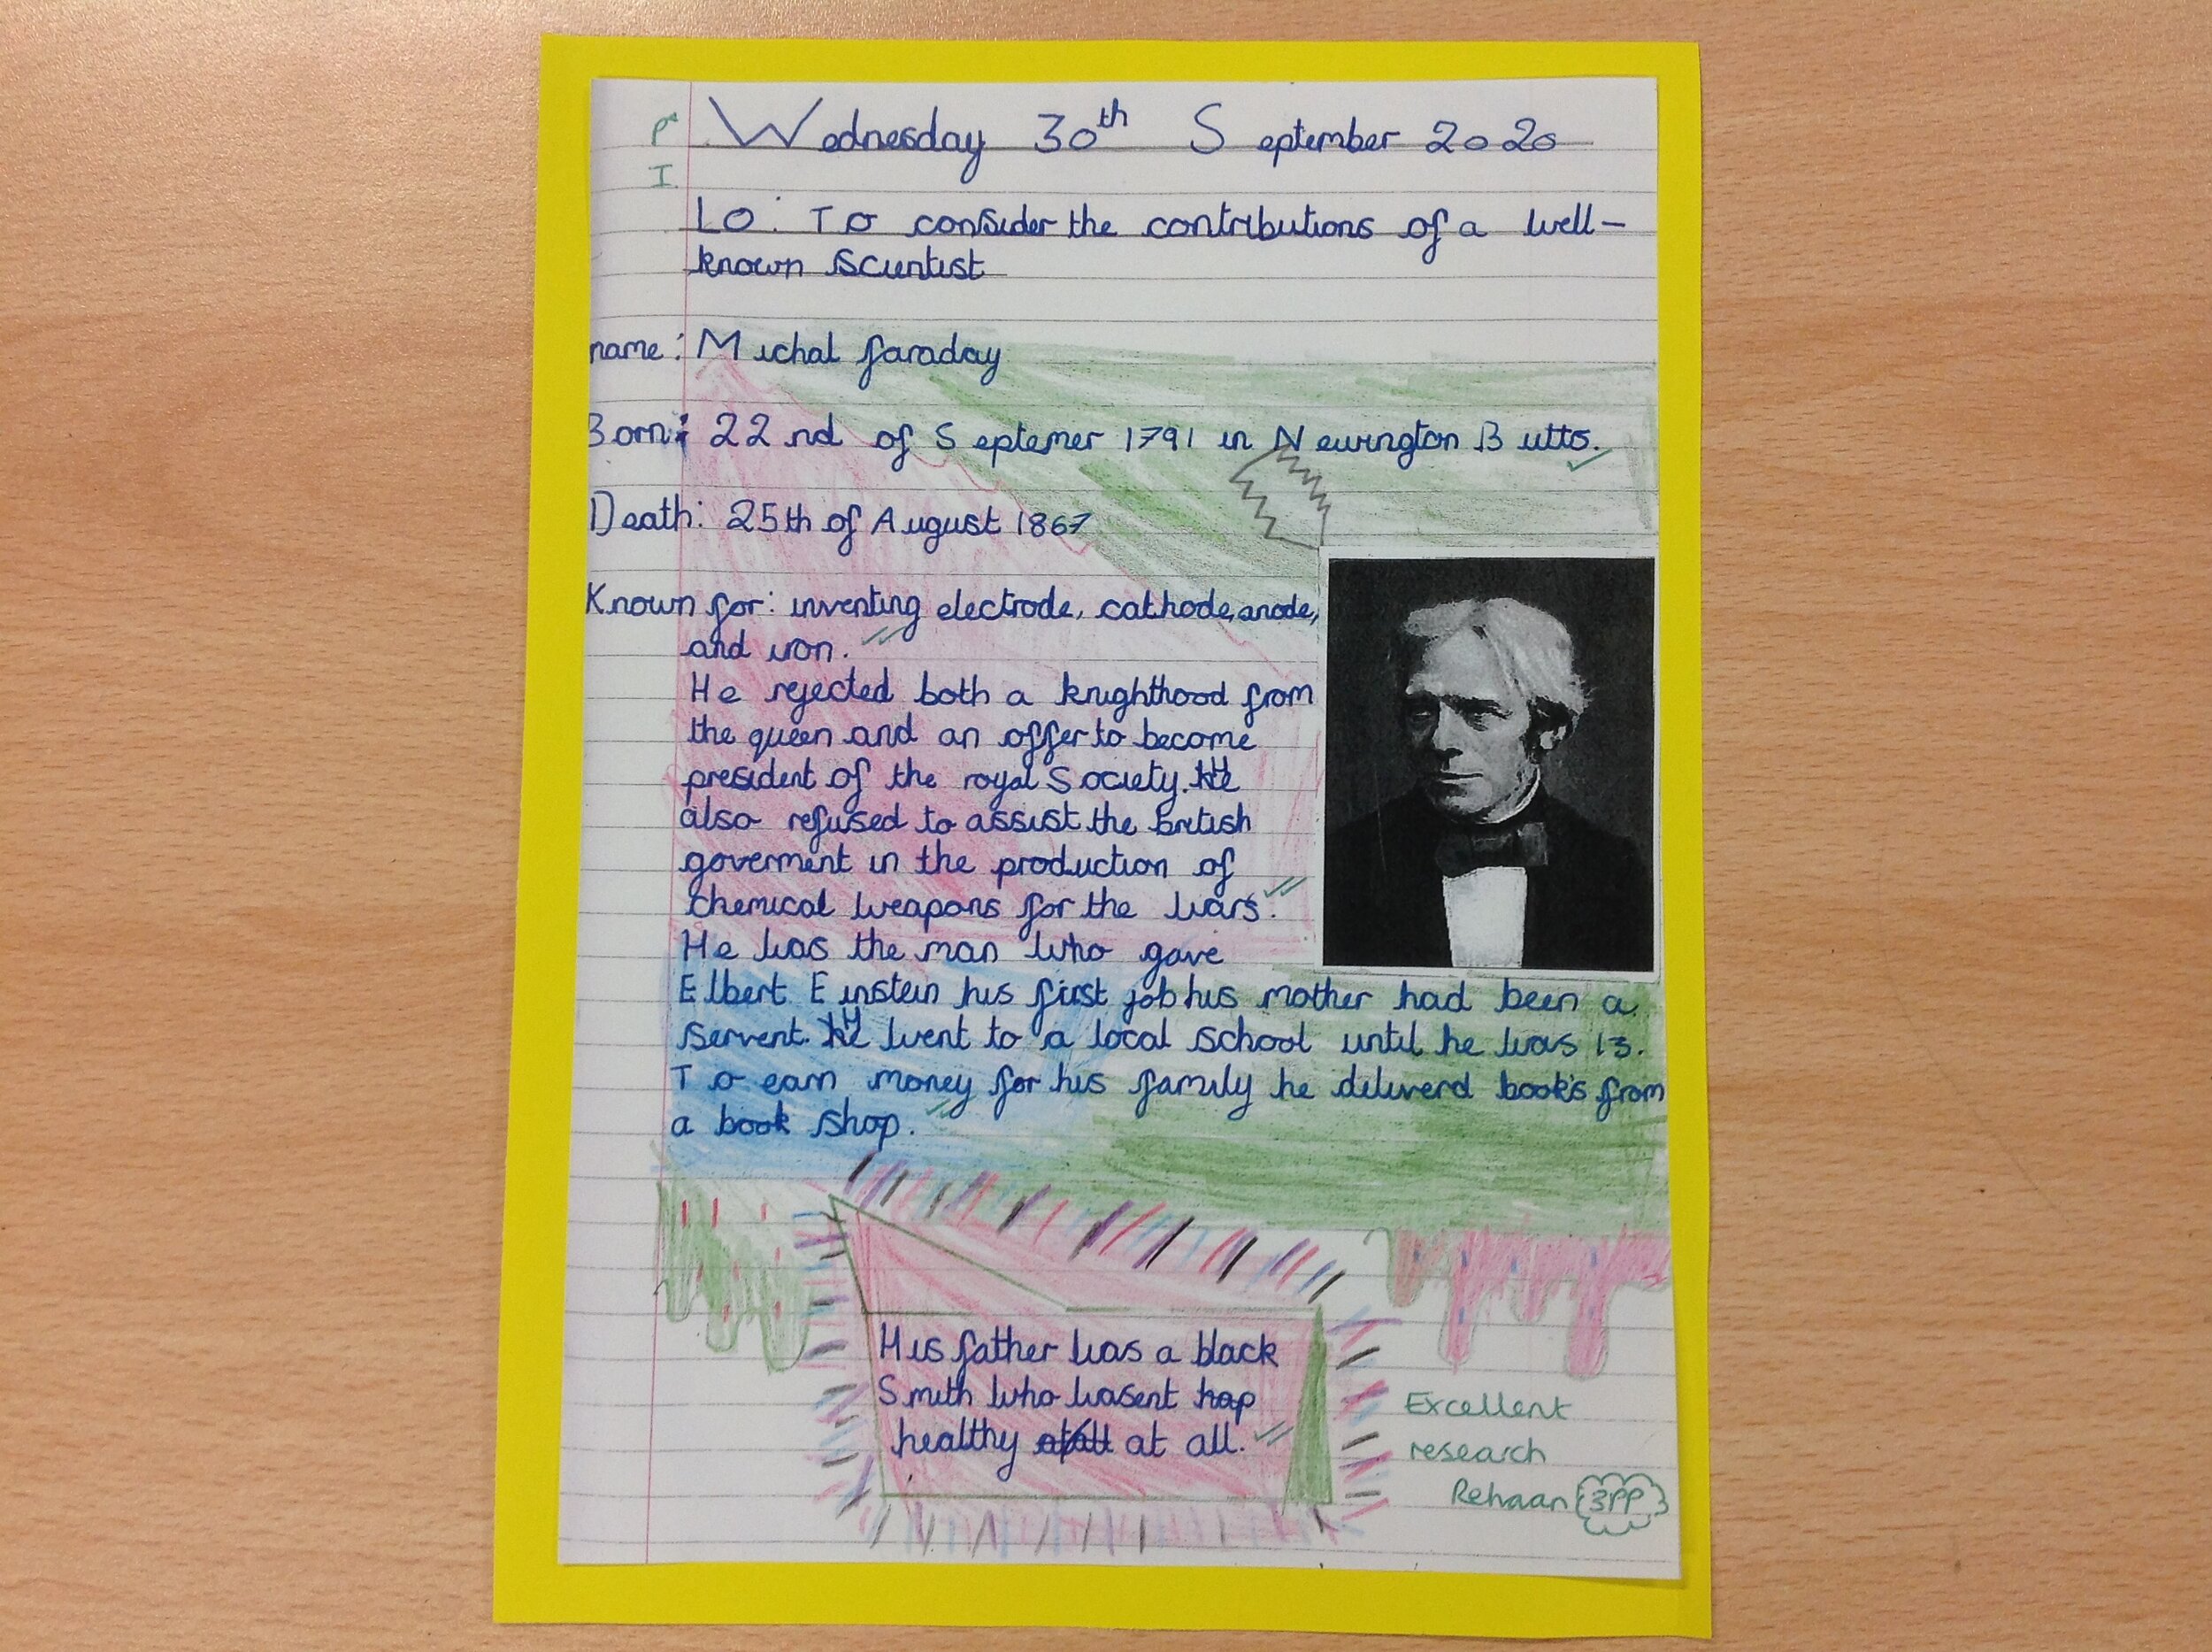 P
I
Wednesday 30th September 2020
LO: To consider the contributions of a well-
known scientist
name: Michal faraday
Born: 22nd of Septemer 1791 in Newington Butts.
Death: 25th of August 1867
Known for: inventing electrode, cathode, anode,
and iron.
He rejected both a knighthood from
the queen and an offer to become
president of the royal Society. He
also refused to assist the british
goverment in the production of
chemical weapons for the wars.
He was the man who gave
Elbert Einstein his first job his mother had been a
servent. He went to a local school until he was 13.
To earn money for his family he deliverd books from
a book shop.
His father was a black
Smith who wasent hap
healthy atall at all.
Excellent
research
Rehaan 3PP